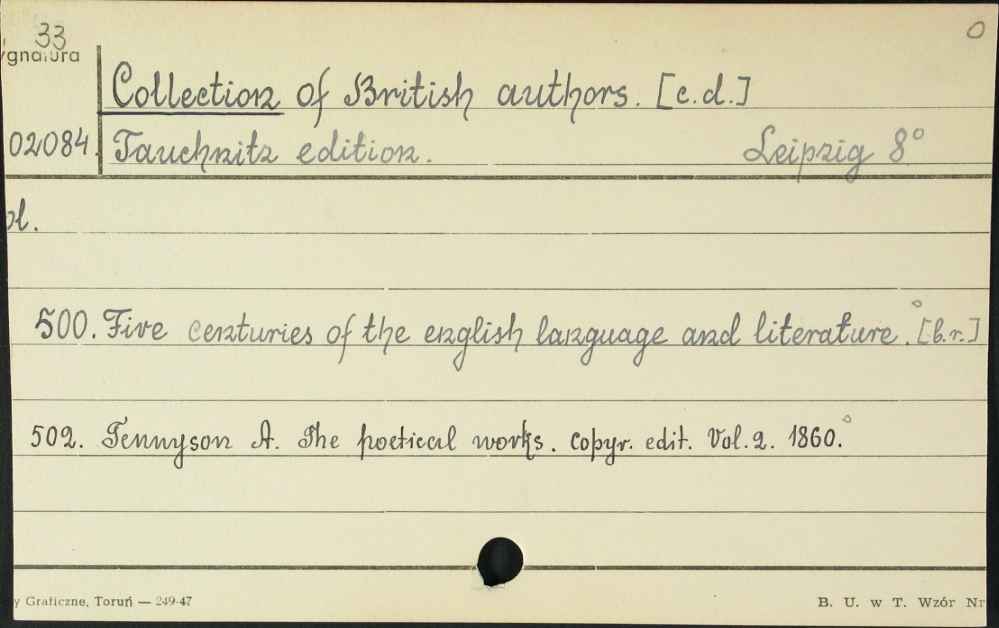 33
ygnatura
O
Collection of British authors. [c.d.]
02084. Tauchnitz edition. Leipzig 8°
ol.
500. Five centuries of the english language and literature.° [b.r.]
502. Tennyson A. The poetical works. Copyr. edit. Vol. 2. 1860.°
y Graficzne, Toruń — 249-47
B. U. w T. Wzór Nr